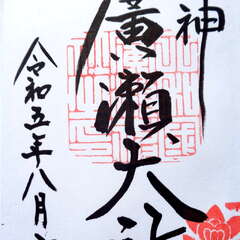 神
廣瀬大社
令和五年八月